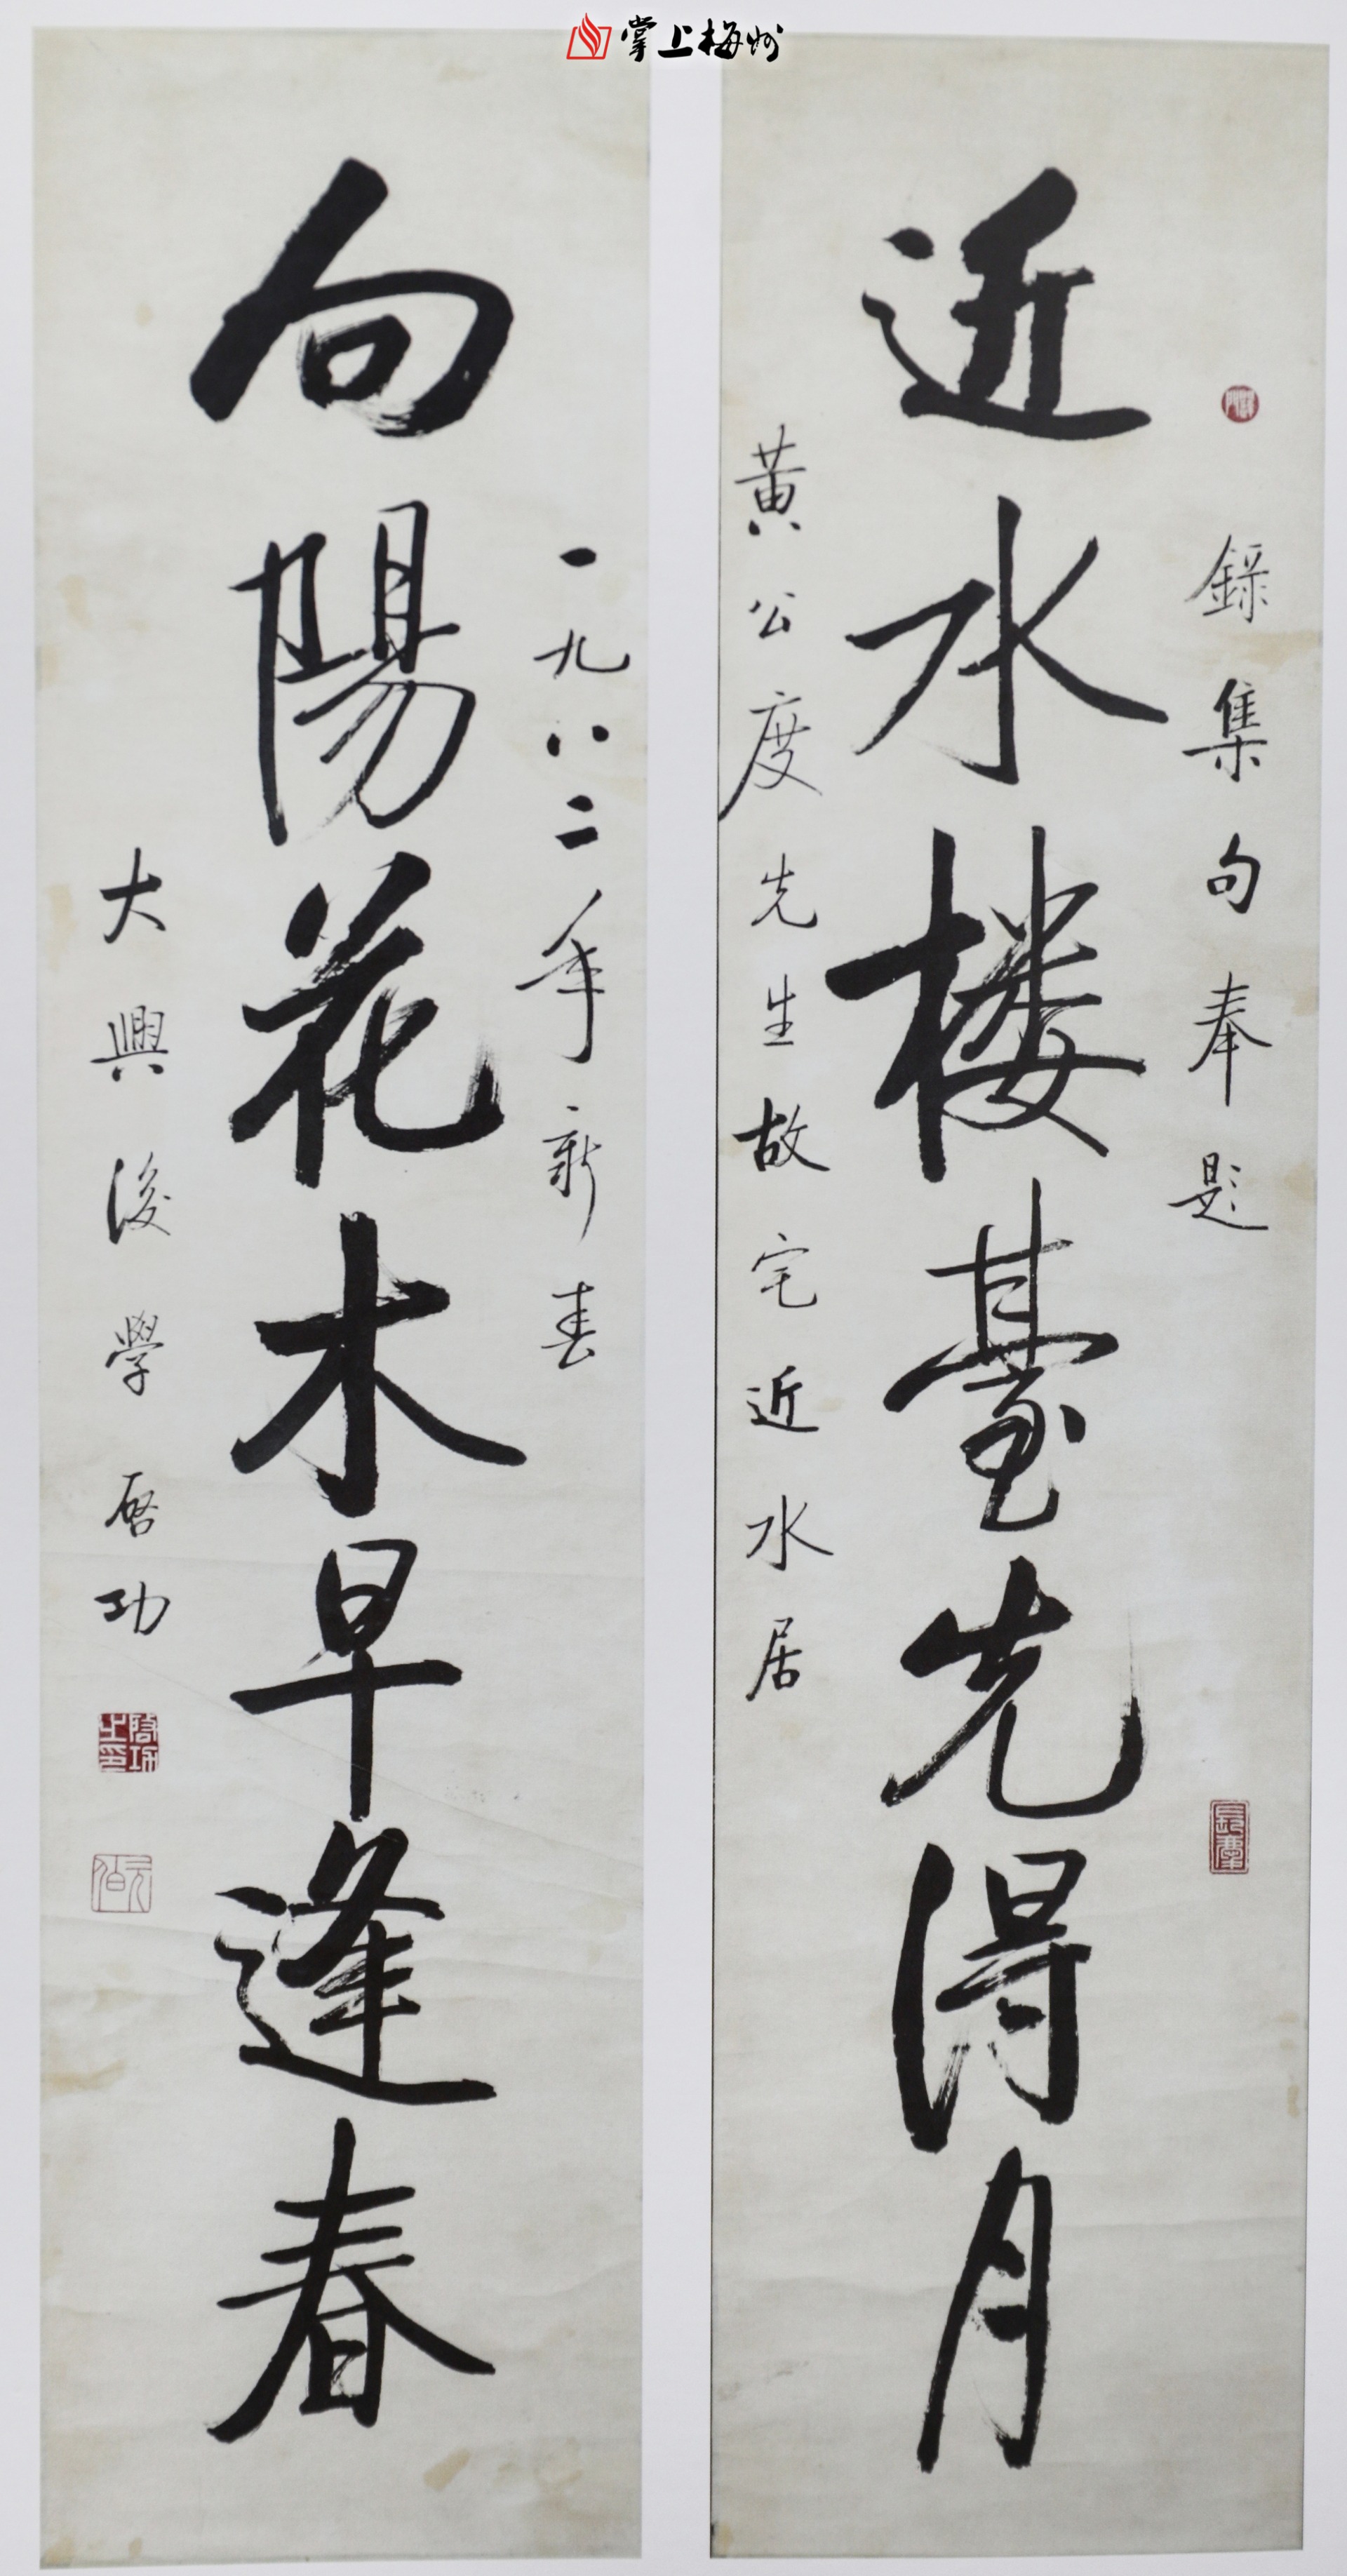 掌上梅州
錄集句奉題
近水楼臺先得月
黄公度先生故宅近水居
一九八二年新春
向陽花木早逢春
大興後學启功
启功之印
元伯